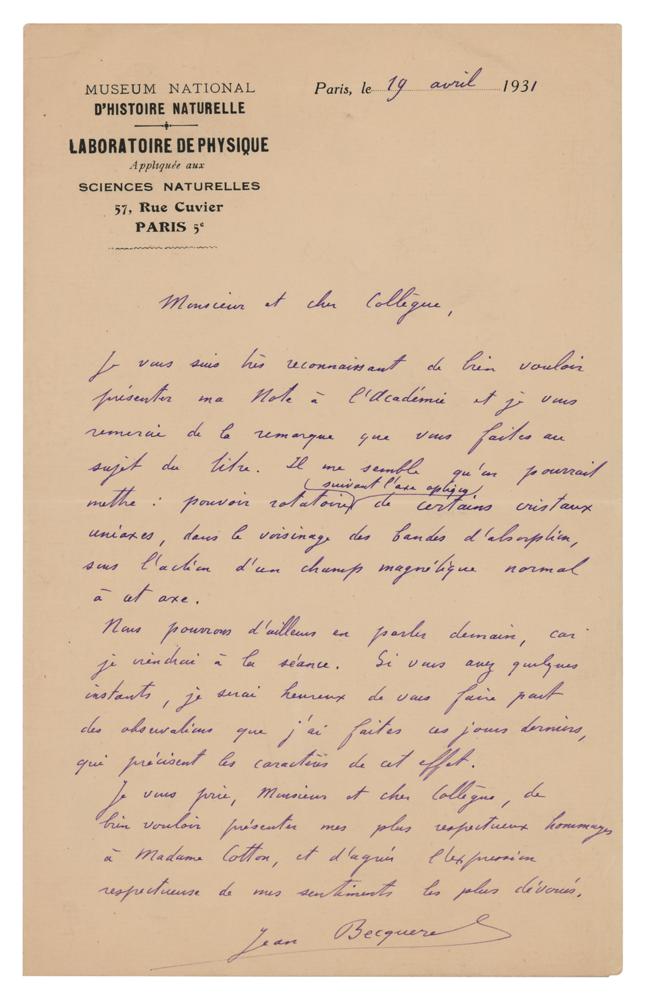 MUSEUM NATIONAL
D'HISTOIRE NATURELLE
LABORATOIRE DE PHYSIQUE
Appliquée aux
SCIENCES NATURELLES
57, Rue Cuvier
PARIS 5e
Paris, le 19 avril 1931
Monsieur et cher Collègue,
Je vous suis très reconnaissant de bien vouloir
présenter ma Note à l'Académie et je vous
remercie de la remarque que vous faites au
sujet du titre. Il me semble qu'on pourrait
suivant l'axe optique
mettre : pouvoir rotatoire de certains cristaux
uniaxes, dans le voisinage des bandes d'absorption,
sous l'action d'un champ magnétique normal
à cet axe.
Nous pourrons d'ailleurs en parler demain, car
je viendrai à la séance. Si vous avez quelques
instants, je serai heureux de vous faire part
des observations que j'ai faites ces jours derniers,
qui précisent les caractères de cet effet.
Je vous prie, Monsieur et cher Collègue, de
bien vouloir présenter mes plus respectueux hommages
à Madame Cotton, et d'agréer l'expression
respectueuse de mes sentiments les plus dévoués.
Jean Becquerel